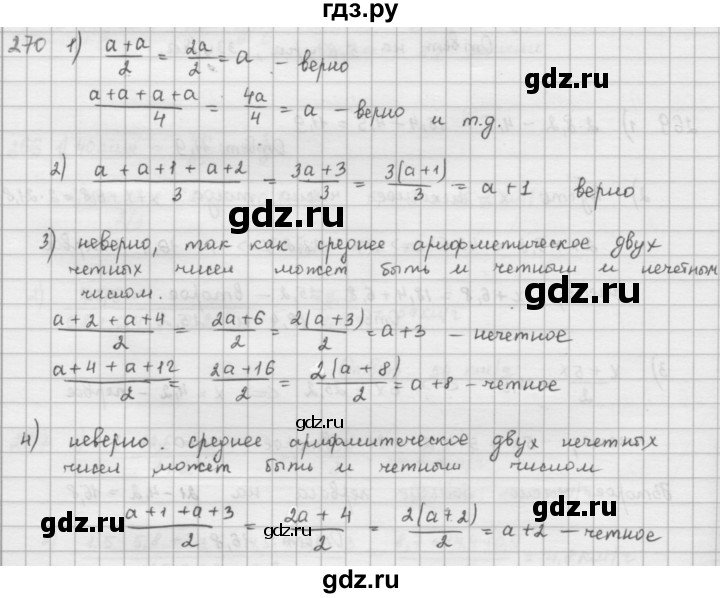 гдз.ру
270 1) (a+a)/2 = 2a/2 = a – верно
(a+a+a+a)/4 = 4a/4 = a – верно и т.д.
2) (a + a+1 + a+2)/3 = (3a+3)/3 = 3(a+1)/3 = a+1 верно
gdz.ru
3) неверно, так как среднее арифметическое двух
четных чисел может быть и четным и нечетным
числом.
gdz.ru
(a+2 + a+4)/2 = (2a+6)/2 = 2(a+3)/2 = a+3 – нечетное
(a+4 + a+12)/2 = (2a+16)/2 = 2(a+8)/2 = a+8 – четное
gdz.ru
4) неверно. среднее арифмитеческое двух нечетных
чисел может быть и четным числом
gdz.ru
gdz.ru
(a+1 + a+3)/2 = (2a+4)/2 = 2(a+2)/2 = a+2 – четное
gdz.ru